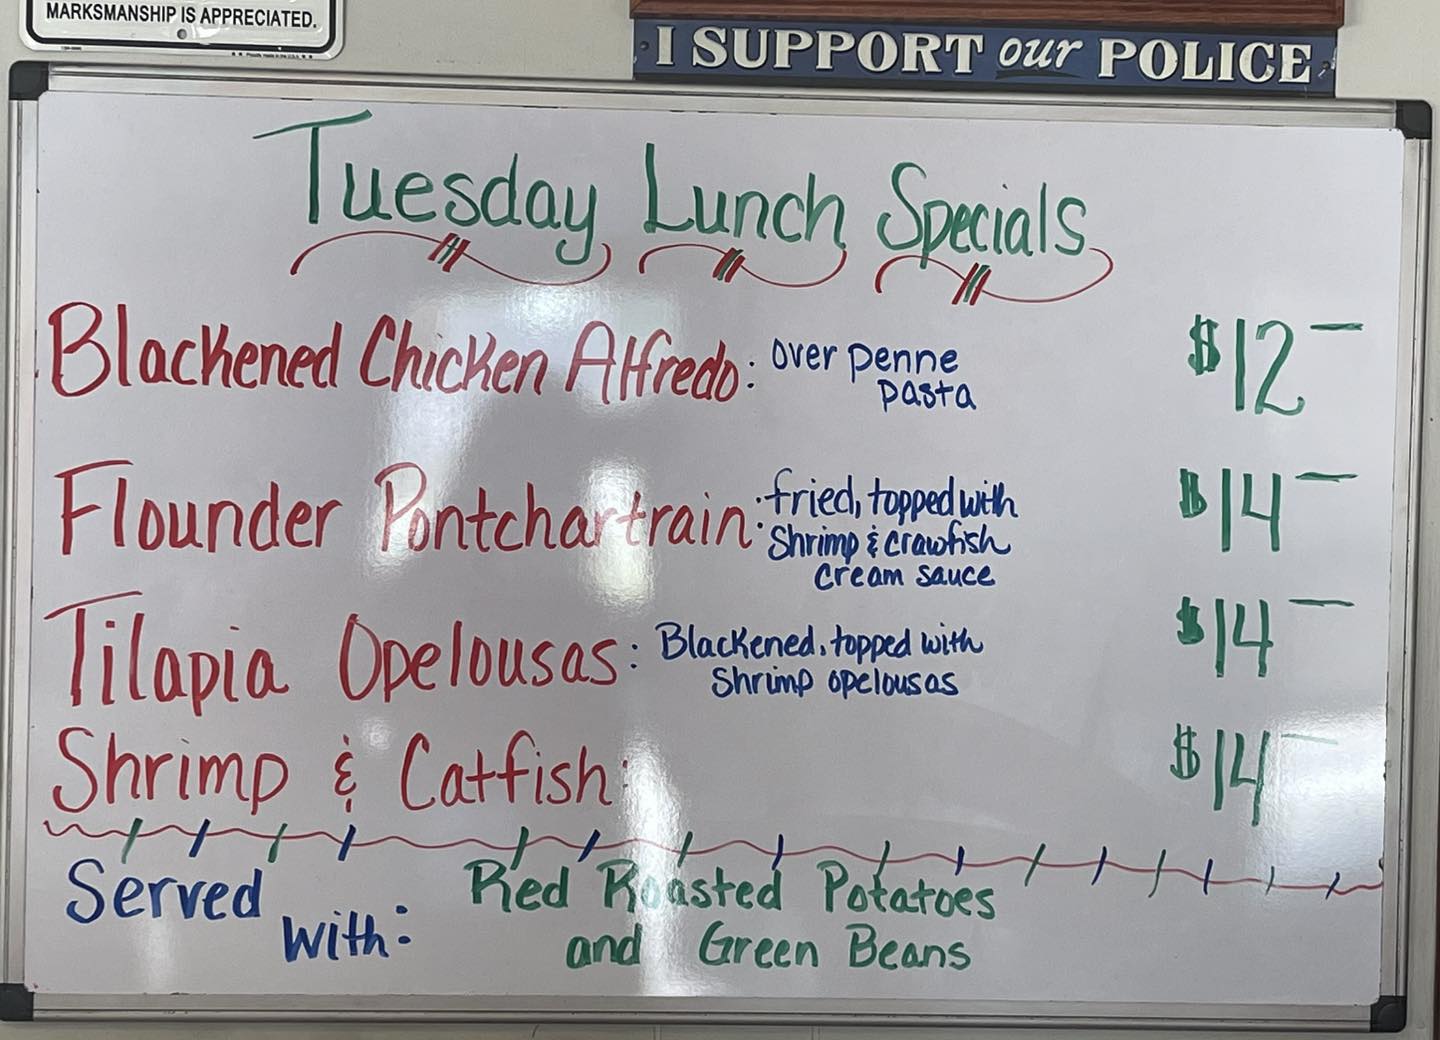 MARKSMANSHIP IS APPRECIATED.
I SUPPORT our POLICE
Tuesday Lunch Specials
Blackened Chicken Alfredo: over penne $12
pasta
Flounder Pontchartrain: fried, topped with $14
Shrimp & crawfish
cream sauce
Tilapia Opelousas: Blackened, topped with $14
Shrimp opelousas
Shrimp & Catfish: $14
Served Red Roasted Potatoes
with: and Green Beans